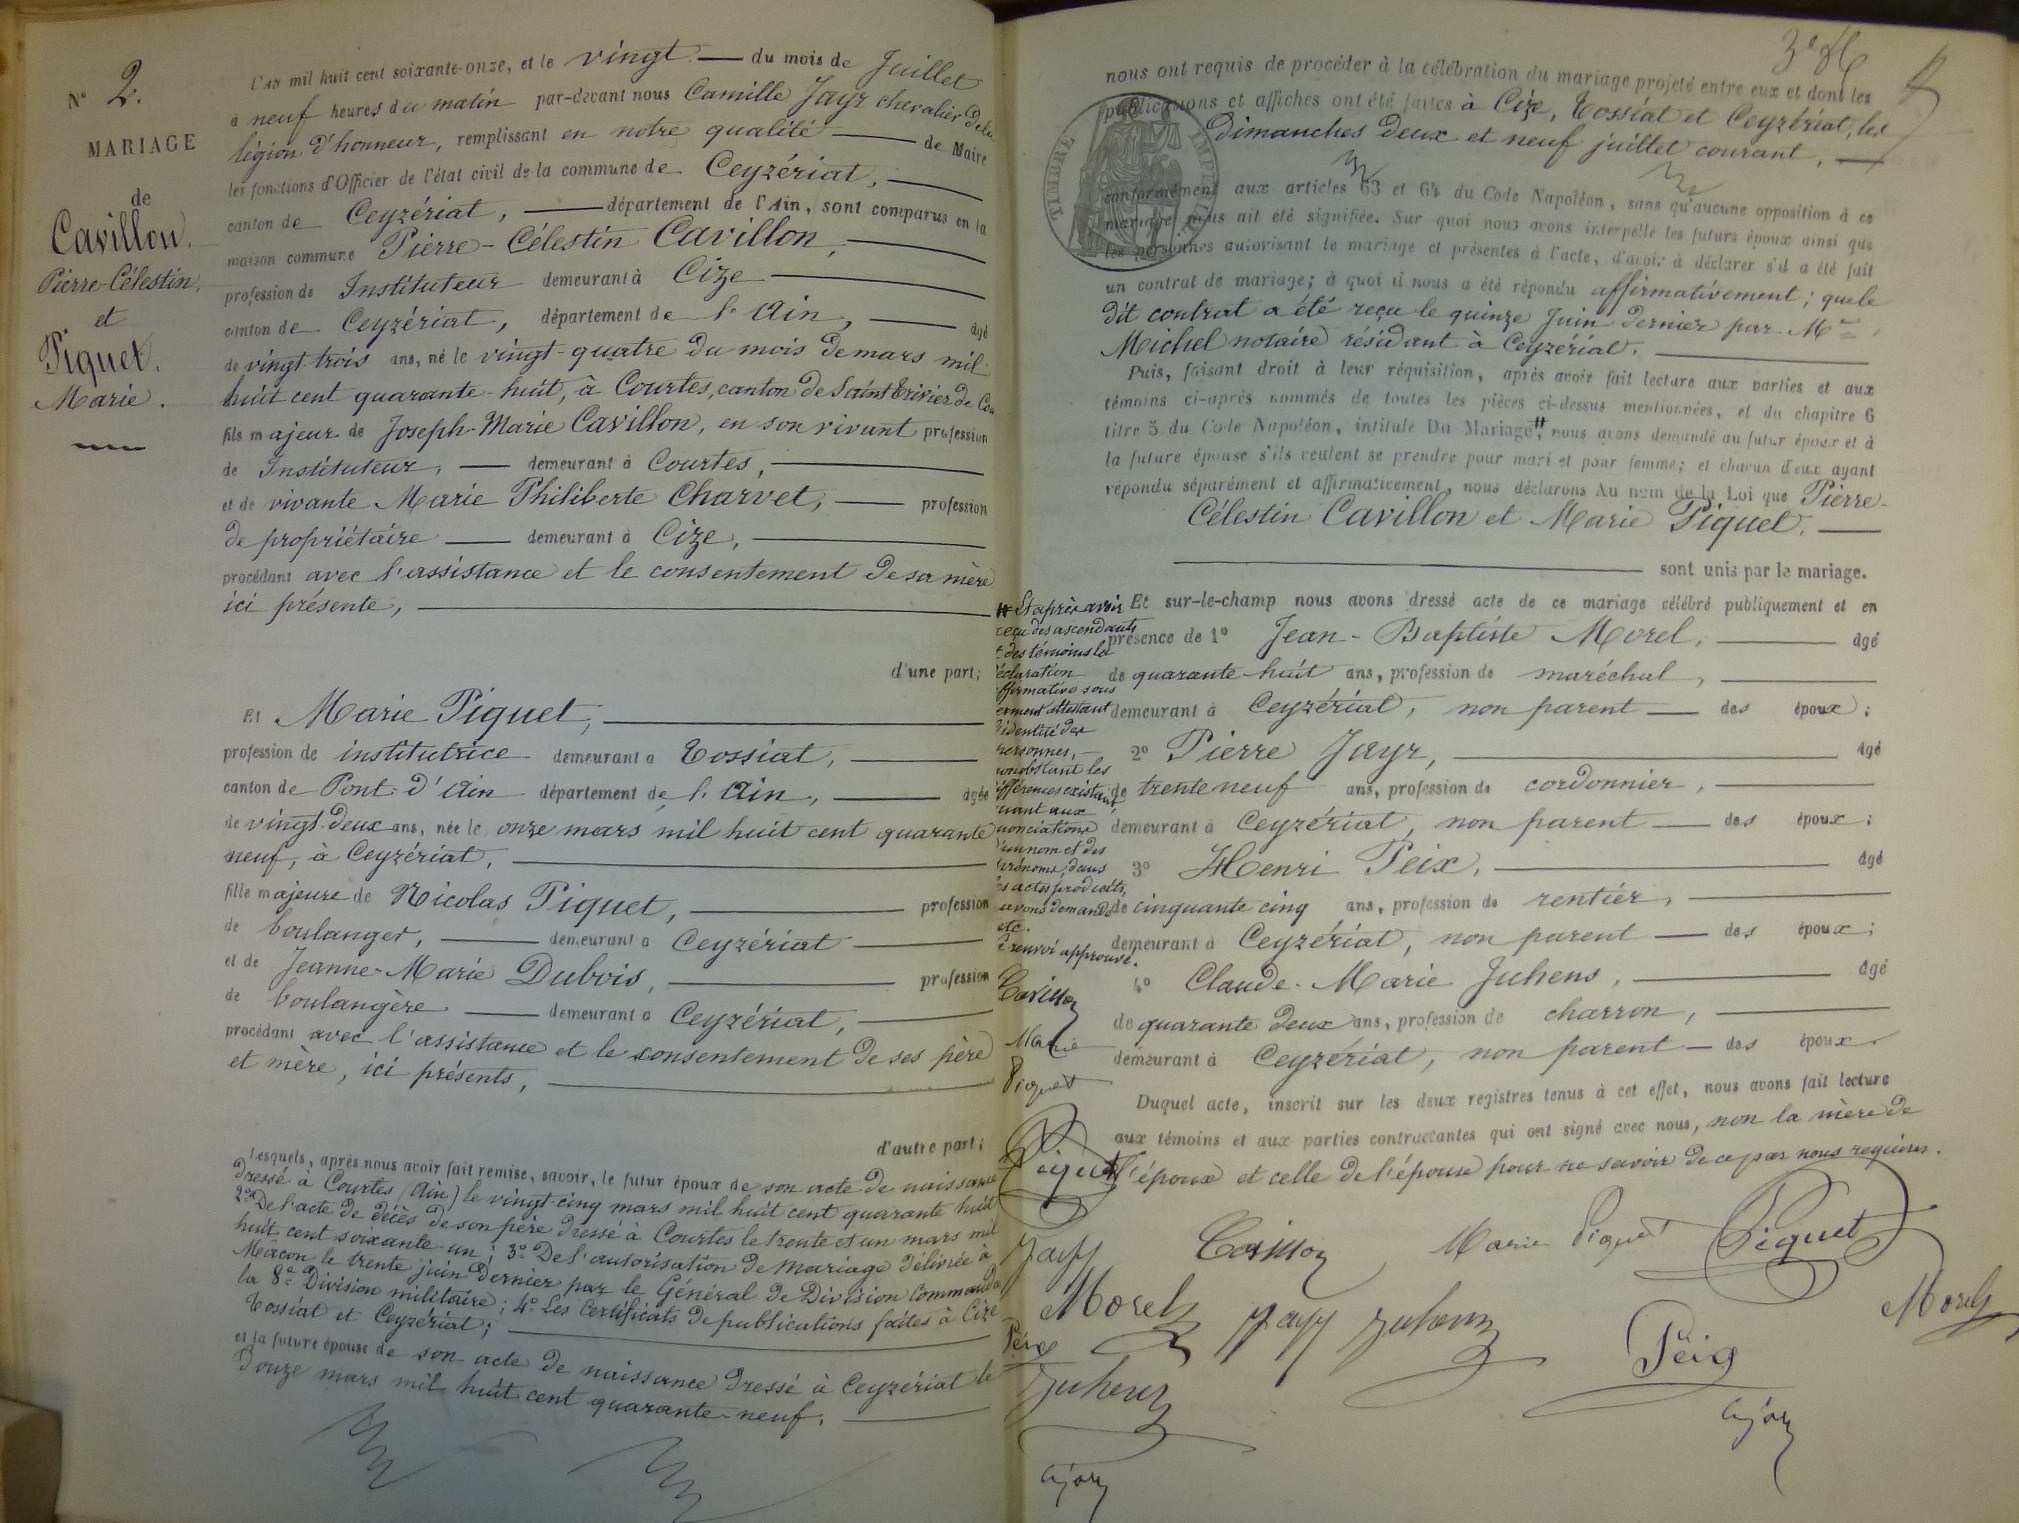 N° 2.
MARIAGE
de
Cavillon,
Pierre-Célestin,
et
Piquet.
Marie.
L'an mil huit cent soixante-onze, et le vingt du mois de Juillet
à neuf heures du matin par-devant nous Camille Jayr chevalier de la
légion d'honneur, remplissant en notre qualité de Maire
les fonctions d'Officier de l'état civil de la commune de Ceyzériat,
canton de Ceyzériat, département de l'Ain, sont comparus en la
maison commune Pierre-Célestin Cavillon,
profession de Instituteur demeurant à Cize
canton de Ceyzériat, département de l'Ain, âgé
de vingt trois ans, né le vingt-quatre du mois de mars mil
huit cent quarante-huit, à Courtes, canton de Saint Trivier de Cou
fils majeur de Joseph-Marie Cavillon, en son vivant profession
de Instituteur, demeurant à Courtes,
et de vivante Marie Philiberte Charvet, profession
de propriétaire demeurant à Cize,
procédant avec l'assistance et le consentement de sa mère
ici présente,
d'une part;
Et Marie Piquet,
profession de institutrice demeurant à Tossiat,
canton de Pont d'Ain département de l'Ain, âgée
de vingt-deux ans, née le onze mars mil huit cent quarante
neuf, à Ceyzériat,
fille majeure de Nicolas Piquet, profession
de boulanger, demeurant à Ceyzériat
et de Jeanne-Marie Dubois, profession
de boulangère demeurant à Ceyzériat,
procédant avec l'assistance et le consentement de ses père
et mère, ici présents,
d'autre part;
Lesquels, après nous avoir fait remise, savoir, le futur époux de son acte de naissance
dressé à Courtes (Ain) le vingt-cinq mars mil huit cent quarante huit
2° De l'acte de décès de son père dressé à Courtes le trente et un mars mil
huit cent soixante-un; 3° De l'autorisation de mariage délivrée à
Mâcon le trente juin dernier par le Général de Division Commandt
la 8e Division militaire; 4° Les certificats de publications faites à Cize
Tossiat et Ceyzériat;
et la future épouse de son acte de naissance dressé à Ceyzériat le
douze mars mil huit cent quarante-neuf.
nous ont requis de procéder à la célébration du mariage projeté entre eux et dont les
publications et affiches ont été faites à Cize, Tossiat et Ceyzériat, les
dimanches deux et neuf juillet courant,
TIMBRE IMPÉRIAL
conformément aux articles 63 et 64 du Code Napoléon, sans qu'aucune opposition à ce
mariage nous ait été signifiée. Sur quoi nous avons interpellé les futurs époux ainsi que
les personnes autorisant le mariage et présentes à l'acte, d'avoir à déclarer s'il a été fait
un contrat de mariage; à quoi il nous a été répondu affirmativement; que le
dit contrat a été reçu le quinze Juin dernier par Me
Michel notaire résidant à Ceyzériat.
Puis, faisant droit à leur réquisition, après avoir fait lecture aux parties et aux
témoins ci-après nommés de toutes les pièces ci-dessus mentionnées, et du chapitre 6
titre 5 du Code Napoléon, intitulé Du Mariage #, nous avons demandé au futur époux et à
la future épouse s'ils veulent se prendre pour mari et pour femme; et chacun d'eux ayant
répondu séparément et affirmativement, nous déclarons Au nom de la Loi que Pierre-
Célestin Cavillon et Marie Piquet,
sont unis par le mariage.
Et sur-le-champ nous avons dressé acte de ce mariage célébré publiquement et en
présence de 1° Jean-Baptiste Morel, âgé
de quarante-huit ans, profession de maréchal,
demeurant à Ceyzériat, non parent des époux;
2° Pierre Jayr, âgé
de trente neuf ans, profession de cordonnier,
demeurant à Ceyzériat, non parent des époux;
3° Henri Peix, âgé
de cinquante cinq ans, profession de rentier,
demeurant à Ceyzériat, non parent des époux;
4° Claude-Marie Juhens, âgé
de quarante deux ans, profession de charron,
demeurant à Ceyzériat, non parent des époux.
Duquel acte, inscrit sur les deux registres tenus à cet effet, nous avons fait lecture
aux témoins et aux parties contractantes qui ont signé avec nous, non la mère de
l'époux et celle de l'épouse pour ne savoir de ce par nous requises.
# Et après avoir
reçu des ascendants
et des témoins la
déclaration
affirmative sous
serment attestant
l'identité des
personnes,
nonobstant les
différences existant
quant aux
énonciations
d'un nom et des
prénoms, dans
les actes produits,
avons demandé
etc.
renvoi approuvé.
Cavillon
Marie
Piquet
Piquet
Jayr
Morel
Peix
Juhens
Cavillon Marie Piquet Piquet
Jayr Juhens Peix Morel